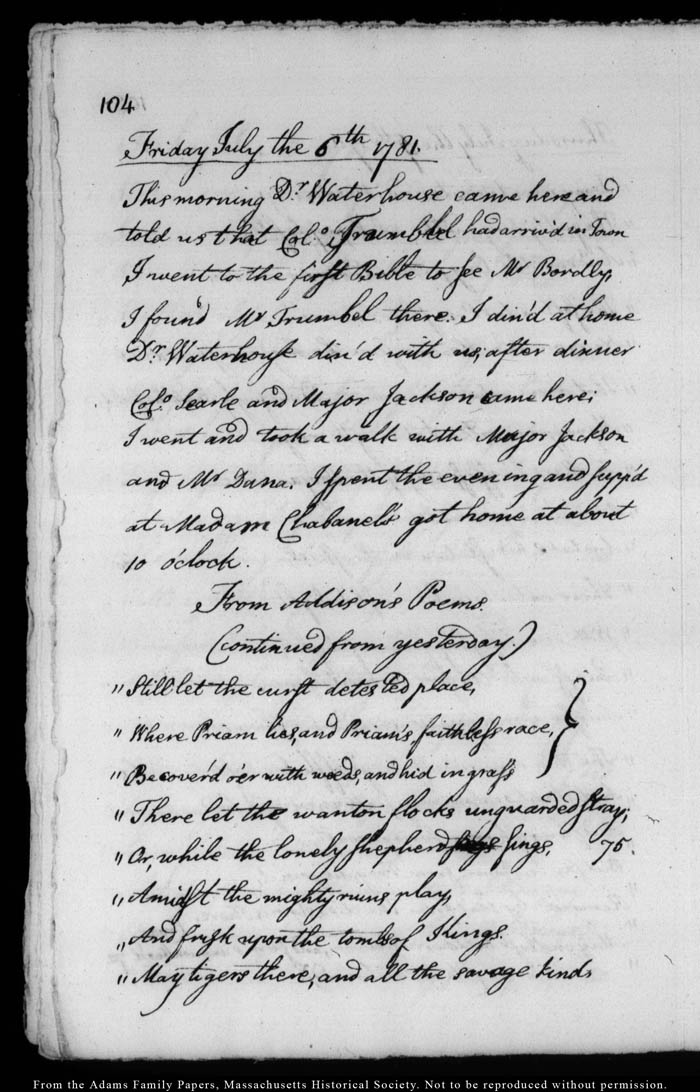 104
Friday July the 6th 1781.
This morning Dr. Waterhouse came here and
told us that Colo. Trumbel had arriv'd in Town
I went to the first Bible to see Mr Bordly,
I found Mr Trumbel there. I din'd at home
Dr. Waterhouse din'd with us, after dinner
Colo. Searle and Major Jackson came here;
I went and took a walk with Major Jackson
and Mr Dana. I spent the evening and supp'd
at Madam Chabanel's got home at about
10 o'clock.
From Addison's Poems.
(continued from yesterday.)
"Still let the curst detested place,
"Where Priam lies, and Priam's faithless race,
"Be cover'd o'er with weeds, and hid in grass
"There let the wanton flocks unguarded stray;
"Or, while the lonely shepherd sings, 75.
"Amidst the mighty ruins play,
"And frisk upon the tombs of Kings.
"May tigers there, and all the savage kind,
From the Adams Family Papers, Massachusetts Historical Society. Not to be reproduced without permission.